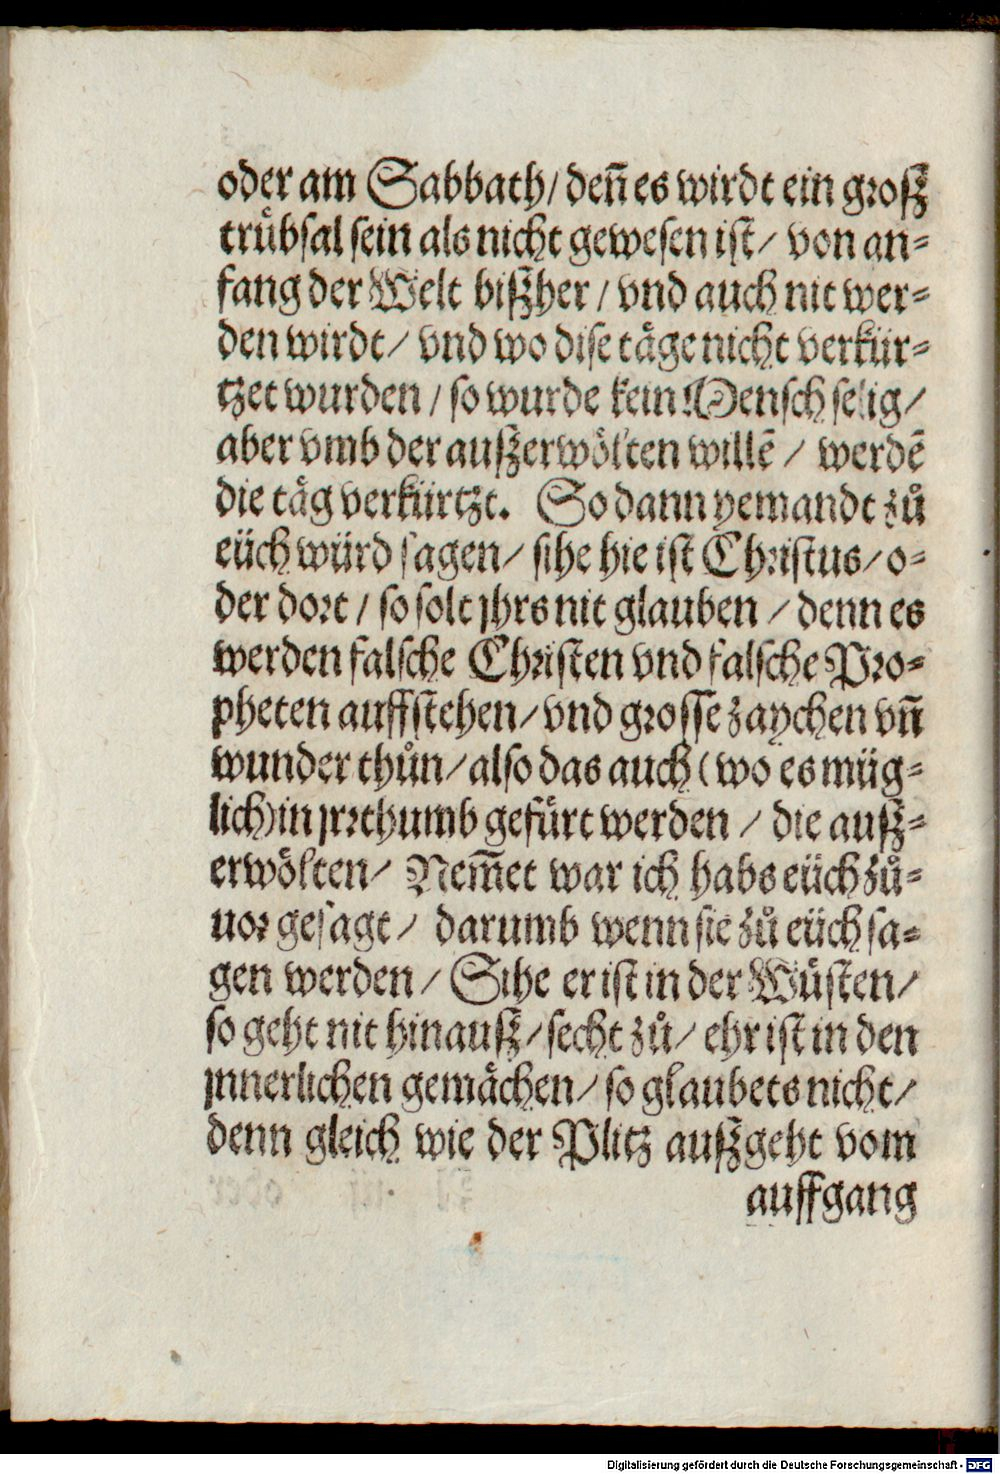 oder am Sabbath/ deñ es wirdt ein groß
trübsal sein als nicht gewesen ist/ von an⸗
fang der Welt bißher/ vnd auch nit wer⸗
den wirdt/ vnd wo dise täge nicht verkür⸗
tzet wurden/ so wurde kein Mensch selig/
aber vmb der außerwölten willē/ werdē
die täg verkürtzt. So dann yemandt zů
eüch würd sagen/ sihe hie ist Christus/ o⸗
der dort/ so solt jhrs nit glauben/ denn es
werden falsche Christen vnd falsche Pro⸗
pheten auffstehen/ vnd grosse zaychen vñ
wunder thůn/ also das auch (wo es müg⸗
lich) in jrrthumb gefürt werden/ die auß⸗
erwölten/ Nem̃et war ich habs eüch zů⸗
uor gesagt/ darumb wenn sie zů eüch sa⸗
gen werden/ Sihe er ist in der Wüsten/
so geht nit hinauß/ secht zů/ ehr ist in den
jnnerlichen gemächen/ so glaubets nicht/
denn gleich wie der Plitz außgeht vom
auffgang
Digitalisierung gefördert durch die Deutsche Forschungsgemeinschaft - DFG